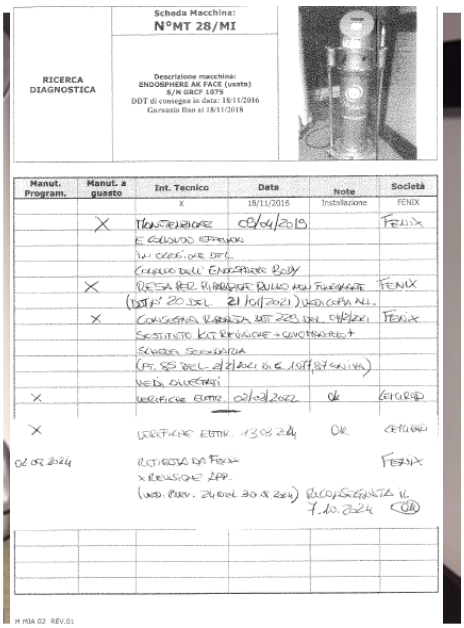 Scheda Macchina:
N°MT 28/MI
RICERCA
DIAGNOSTICA
Descrizione macchina:
ENDOSPHERE AK FACE (usata)
S/N GRCF 1075
DDT di consegna in data: 18/11/2016
Garanzia fino al 18/11/2018
Manut. Program. Manut. a guasto Int. Tecnico Data Note Società
X 18/11/2016 Installazione FENIX
X MANUTENZIONE 09/04/2019 FENIX
E COLLAUDO
IN OCCASIONE DEL
COLLAUDO DELL' ENDOSPHERE BODY
X RESA PER RIPARAZIONE RULLO NON FUNZIONANTE FENIX
(DDT N° 20 DEL 21/01/2021) VEDI COPIA ALL.
X CONSEGNA RIPARATA DDT 229 DEL FENIX
SOSTITUITO KIT REVISIONE + CAVO +
SCHEDA SECONDARIA
(FT. 85 DEL 2/2/2021 DI € 1977,87 ON IVA)
VEDI ALLEGATI
X VERIFICHE ELETTR. 02/03/2022 Ok
X VERIFICHE ELETTR. 13 03 24 OK
02 09 2024 RITIRATA DA FENIX FENIX
X REVISIONE APP.
(VED. PREV. DEL 30.08.2024) RICONSEGNATA IL
7.10.2024 OK
M MIA 02 REV.01